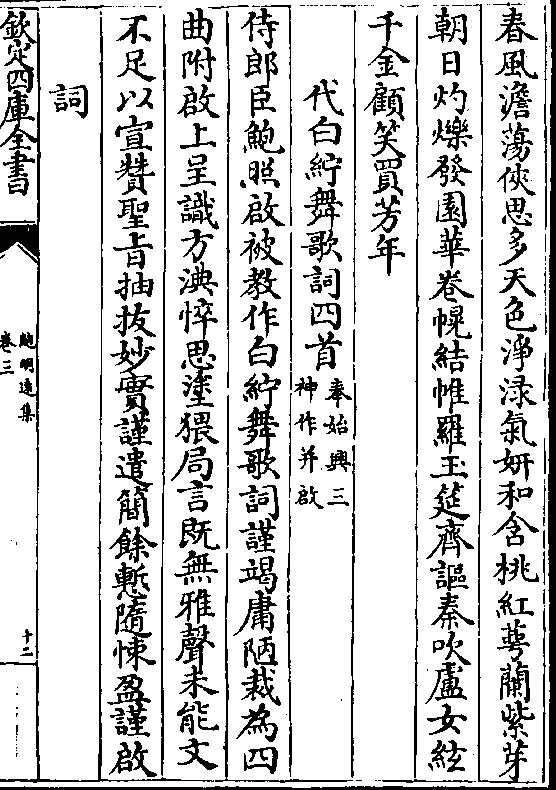 春風澹蕩俠思多天色淨渌氣妍和含桃紅萼蘭紫芽
朝日灼爍發園華卷幌結帷羅玉筵齊謳秦吹盧女絃
千金顧笑買芳年
代白紵舞歌詞四首奉始興王
神作并啟
侍郎臣鮑照啟被教作白紵舞歌詞謹竭庸陋裁為四
曲附啟上呈識方洟悴思塗猥局言既無雅聲未能文
不足以宣贊聖旨抽拔妙實謹遣簡餘慙隨悚盈謹啟
詞
欽定四庫全書
鮑明遠集
卷三
十二